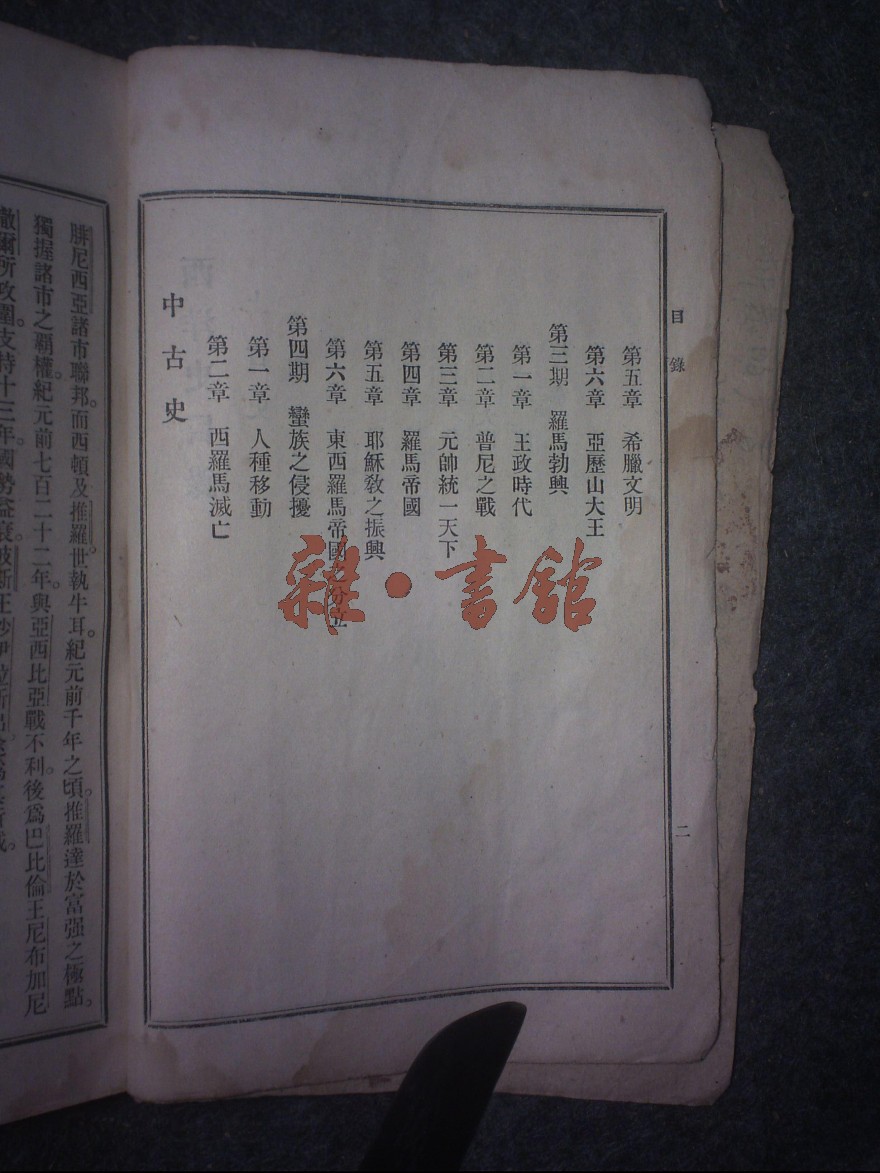 目錄
第五章 希臘文明
第六章 亞歷山大王
第三期 羅馬勃興
第一章 王政時代
第二章 普尼之戰
第三章 元帥統一天下
第四章 羅馬帝國
第五章 耶穌敎之振興
第六章 東西羅馬帝國之分立
第四期 蠻族之侵擾
第一章 人種移動
第二章 西羅馬滅亡
中古史
二
雜·書館
腓尼西亞諸市聯邦。而西頓及推羅世執牛耳。紀元前千年之頃。推羅達於富强之極點。
獨握諸市之覇權。紀元前七百二十二年。與亞西比亞戰不利。後爲巴比倫王尼布加尼
撒爾所攻圍。支持十三年。國勢益衰。波斯王